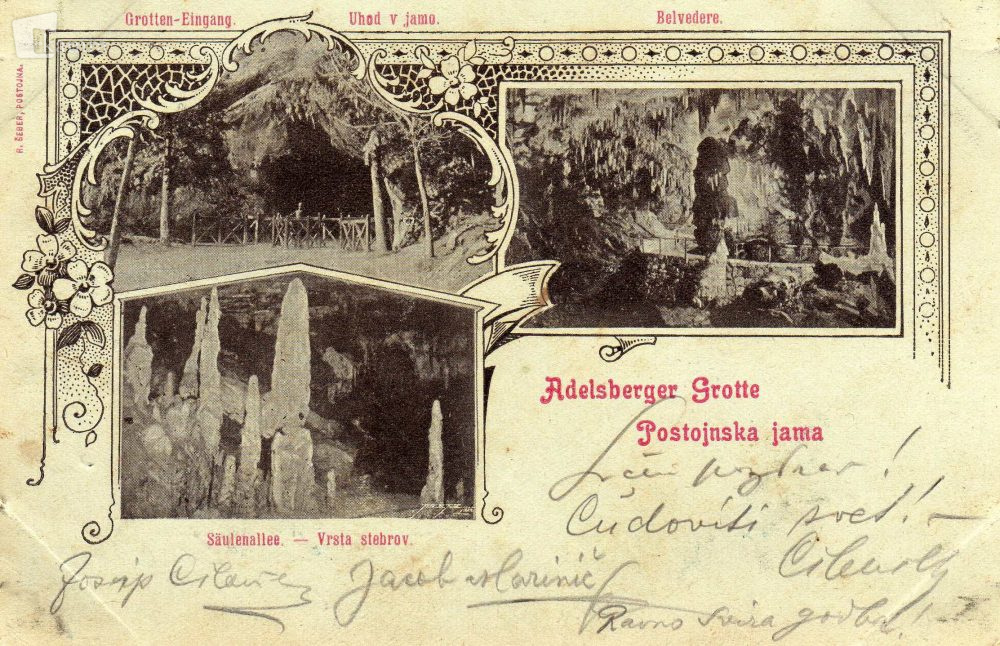 Grotten-Eingang. Uhod v jamo. Belvedere.
R. ŠEBER, POSTOJNA.
Adelsberger Grotte
Postojnska jama
Säulenallee. — Vrsta stebrov.
Srčen pozdrav!
Čudoviti svet! —
Josip
Jacob Marinič
Ravno svira godba!